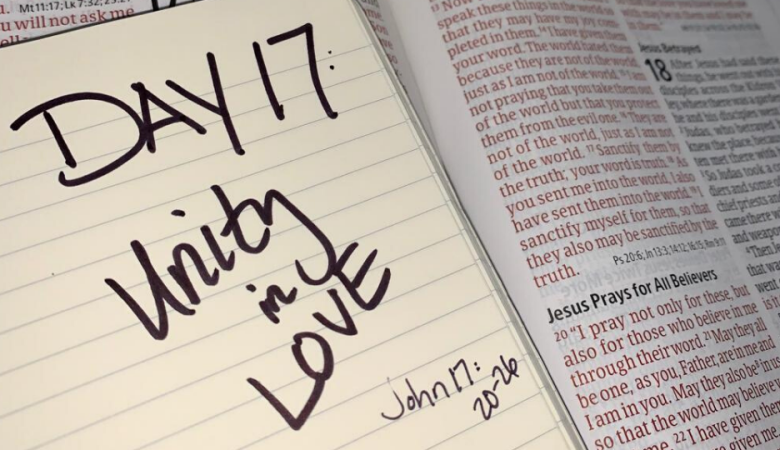 u. Mt 11:17; Lk 7:32;
u will not ask me
DAY 17:
Unity
in
LOVE
John 17:
20-26
speak these things in the world so
that they may have my joy com-
pleted in them. I have given them
your word. The world hated them
because they are not of the world,
just as I am not of the world. I am
not praying that you take them out
of the world but that you protect
them from the evil one. 16 They are
not of the world, just as I am not
of the world. 17 Sanctify them by
the truth; your word is truth. 18 As
you sent me into the world, I also
have sent them into the world. 19 I
sanctify myself for them, so that
they also may be sanctified by the
truth.
Ps 20:6; Jn 13:3; 14:12; 16:15; Rm 9:11
Jesus Prays for All Believers
20 "I pray not only for these, but
also for those who believe in me
through their word. 21 May they all
be one, as you, Father, are in me and
I am in you. May they also be in us,
so that the world may believe
me. 22 I have given them
given me.
Jesus Betrayed
18 After Jesus had said these
things, he went out with
disciples across the
where there was a
he and his disciples
Judas, who betrayed
knew the place,
often met there with
So Judas took a
chief priests and
came there
and weapons
"Then